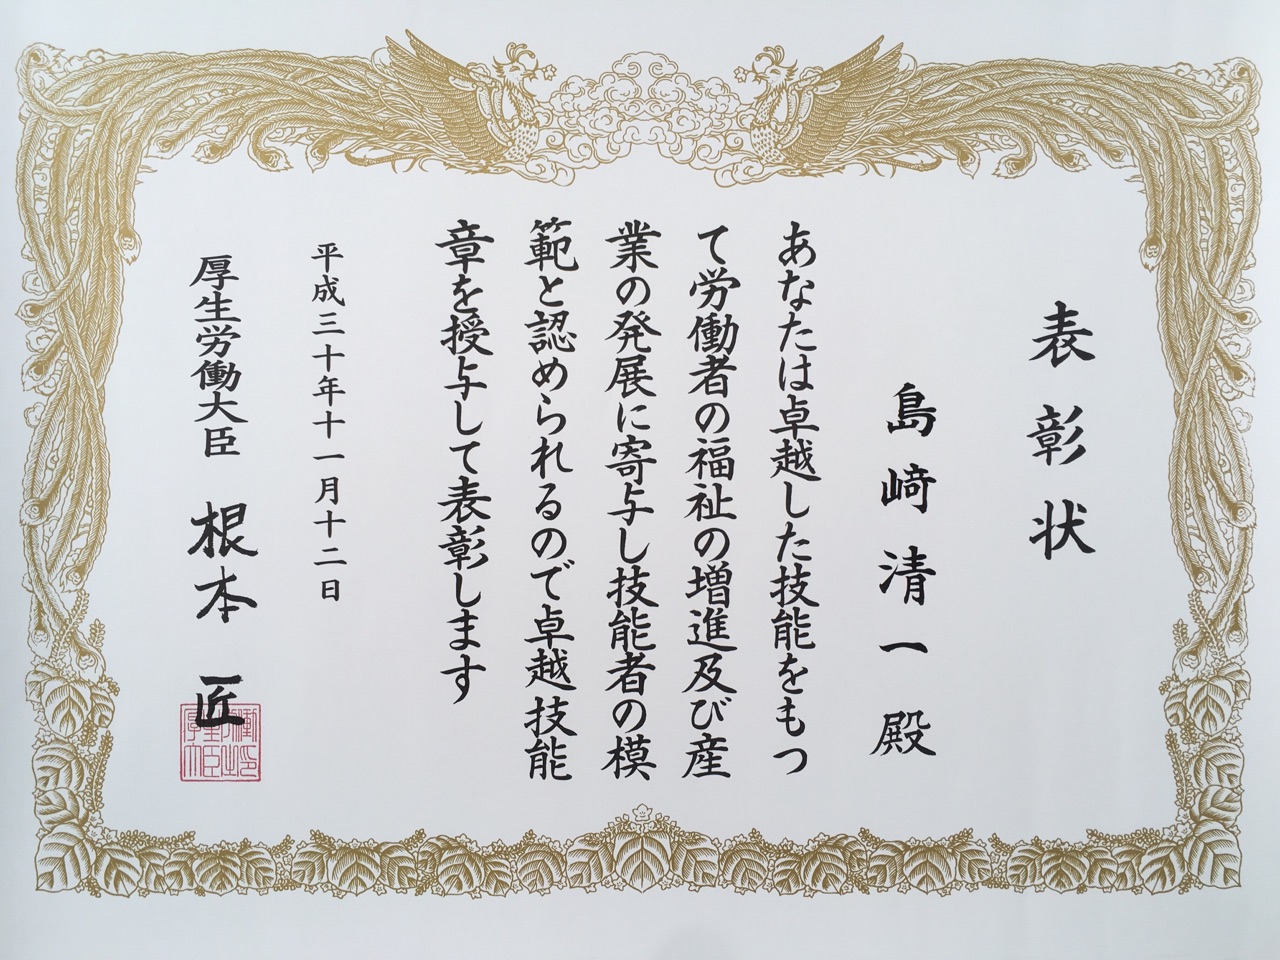 表彰状
島﨑清一殿
あなたは卓越した技能をもつ
て労働者の福祉の増進及び産
業の発展に寄与し技能者の模
範と認められるので卓越技能
章を授与して表彰します
平成三十年十一月十二日
厚生労働大臣 根本匠